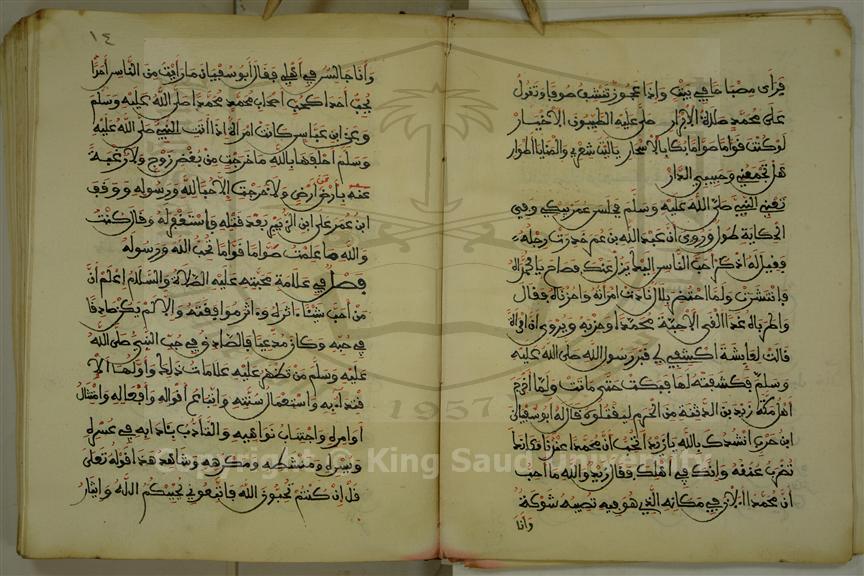 فرأى مصباحا في بيت واذا عجوز تنفش صوفا وتقول
على محمد صلاة الابرار صلى عليه الطيبون الاخيار
لو كنت قواما بكا بالاسحار ياليت شعري والمنايا اطوار
هل تجمعني وحبيبي الدار
تعني النبي صلى الله عليه وسلم فجلس عمر يبكي وفي
الحكاية طول وروي ان عبد الله بن عمر خدرت رجله
فقيل له اذكر احب الناس اليك يزل عنك فصاح يا محمداه
فانتشرت ولما احتضر بلال نادت امرأته واحزناه فقال
واطرباه غدا القى الاحبة محمدا وحزبه ويروى ان امرأة
قالت لعائشة اكشفي لي قبر رسول الله صلى الله عليه
وسلم فكشفته لها فبكت حتى ماتت ولما اخرج
اهل مكة زيد بن الدثنة من الحرم ليقتلوه قال له ابو سفيان
ابن حرب انشدك بالله يا زيد اتحب ان محمدا عندنا مكانك
تضرب عنقه وانك في اهلك فقال زيد والله ما احب
ان محمدا الآن في مكانه الذي هو فيه تصيبه شوكة
وانا
١٤
وانا جالس في اهلي فقال ابو سفيان ما رايت من الناس احدا
يحب احدا كحب اصحاب محمد محمدا صلى الله عليه وسلم
وعن ابن عباس كانت امرأة اذا اتت النبي صلى الله عليه
وسلم احلفها بالله ما خرجت من بغض زوج ولا رغبة
عن
بارض ارض ولا خرجت الا حبا لله ورسوله ووقف
ابن عمر على ابن الزبير بعد قتله واستغفر له وقال كنت
والله ما علمت صواما قواما تحب الله ورسوله
فصل في علامة محبته عليه الصلاة والسلام اعلم ان
من احب شيئا آثره وآثر موافقته والا لم يكن صادقا
في حبه وكان مدعيا فالصادق في حب النبي صلى الله
عليه وسلم من تظهر عليه علامات ذلك واولها الا
قتداء به واستعمال سنته واتباع اقواله وافعاله وامتثال
اوامره واجتناب نواهيه والتأدب بئادابه في عسره
ويسره ومنشطه ومكرهه وشاهد هذا قوله تعلى
قل ان كنتم تحبون الله فاتبعوني يحببكم الله وايثار
1957
Copyright © King Saud University